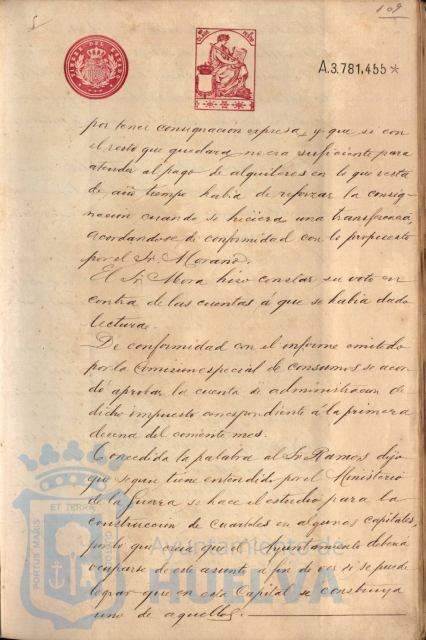 109
TIMBRE DEL ESTADO
A.3.781,455*
por tener consignación expresa, y que si con
el resto que quedara no era suficiente para
atender al pago de alquileres en lo que resta
de año tiempo había de reforzar la consig-
nación cuando se hiciera una transferencia,
acordandose de conformidad con lo propuesto
por el Sr. Morano.
El Sr. Mora hizo constar su voto en
contra de las cuentas á que se había dado
lectura.
De conformidad con el informe emitido
por la Comision especial de consumos se acor-
dó aprobar la cuenta de administracion de
dicho impuesto correspondiente á la primera
decena del corriente mes.
Concedida la palabra al Sr. Ramos dijo
que segun tiene entendido por el Ministerio
de la Guerra se hace el estudio para la
construcción de Cuarteles en algunas capitales,
por lo que cree que el Ayuntamiento deberá
ocuparse de este asunto á fin de ver si se puede
lograr que en esta Capital se construya
uno de aquellos.
PORTUS MARIS ET TERRAE CUSTODIA
Ayuntamiento de
HUELVA